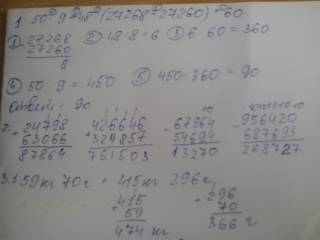 1. 50 · 9 - 48 : (27268 - 27260) · 60
① 27268
27260
8
② 48 : 8 = 6
③ 6 · 60 = 360
④ 50 · 9 = 450
⑤ 450 - 360 = 90
Ответ: 90
2. 24798
63066
87864
+ 426646
324857
751503
54694
13270
- 956420
687693
268727
3. 159кг 70г + 415кг 296г
+ 415
59
474 кг
+ 296
70
366 г